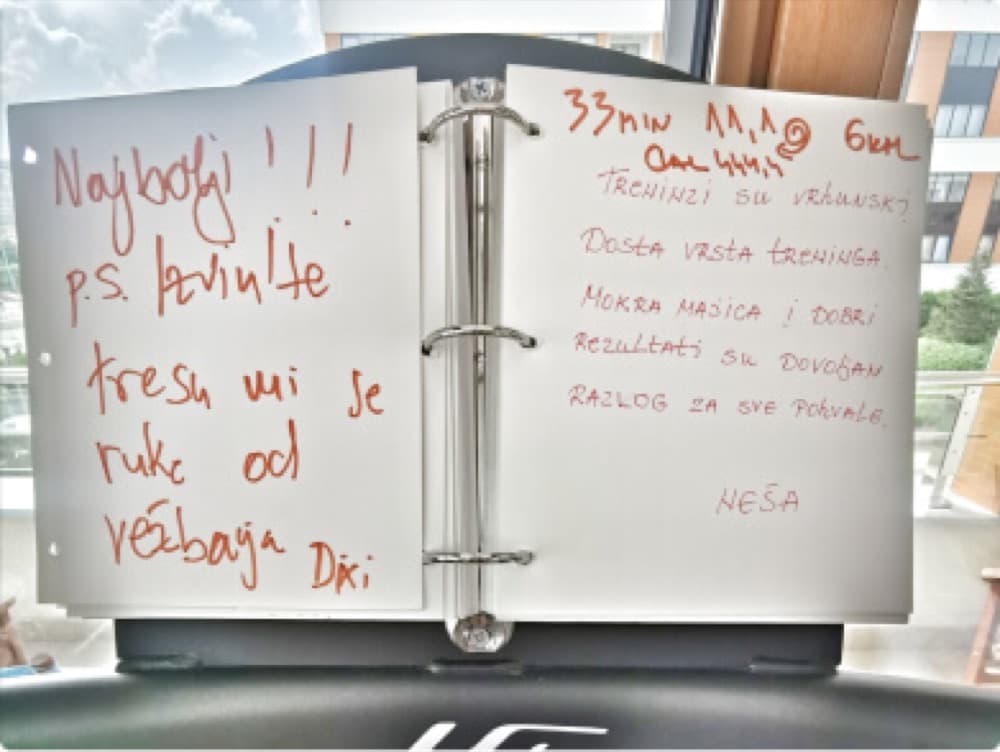 Najbolji!!!
p.s. Izvin'te
tresu mi se
ruke od
vežbanja Dixi
33min 11,1 6km
Cal 444,5
TRENINZI SU VRHUNSKI!
DOSTA VRSTA TRENINGA.
MOKRA MAJICA I DOBRI
REZULTATI SU DOVOLJAN
RAZLOG ZA SVE POHVALE.
NEŠA